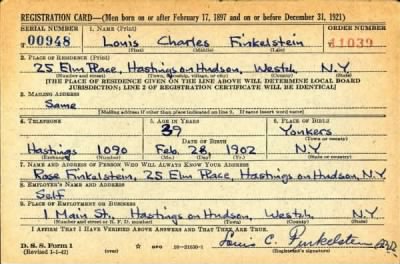 REGISTRATION CARD—(Men born on or after February 17, 1897 and on or before December 31, 1921)
SERIAL NUMBER 1. NAME (Print) ORDER NUMBER
U 00948 Louis Charles Finkelstein 11039
(First) (Middle) (Last)
2. PLACE OF RESIDENCE (Print)
25 Elm Place, Hastings on Hudson, Westch. N.Y.
(Number and street) (Town, township, village, or city) (County) (State)
[THE PLACE OF RESIDENCE GIVEN ON THE LINE ABOVE WILL DETERMINE LOCAL BOARD
JURISDICTION; LINE 2 OF REGISTRATION CERTIFICATE WILL BE IDENTICAL]
3. MAILING ADDRESS
Same
[Mailing address if other than place indicated on line 2. If same insert word same]
4. TELEPHONE 5. AGE IN YEARS 6. PLACE OF BIRTH
39 Yonkers
DATE OF BIRTH (Town or county)
Hastings 1090 Feb. 28, 1902 N.Y.
(Exchange) (Number) (Mo.) (Day) (Yr.) (State or country)
7. NAME AND ADDRESS OF PERSON WHO WILL ALWAYS KNOW YOUR ADDRESS
Rose Finkelstein, 25 Elm Place, Hastings on Hudson, N.Y.
8. EMPLOYER'S NAME AND ADDRESS
Self
9. PLACE OF EMPLOYMENT OR BUSINESS
1 Main St., Hastings on Hudson, Westch. N.Y.
(Number and street or R. F. D. number) (Town) (County) (State)
I AFFIRM THAT I HAVE VERIFIED ABOVE ANSWERS AND THAT THEY ARE TRUE.
D. S. S. Form 1 (over) Louis C. Finkelstein
(Revised 1-1-42) (Registrant's signature)